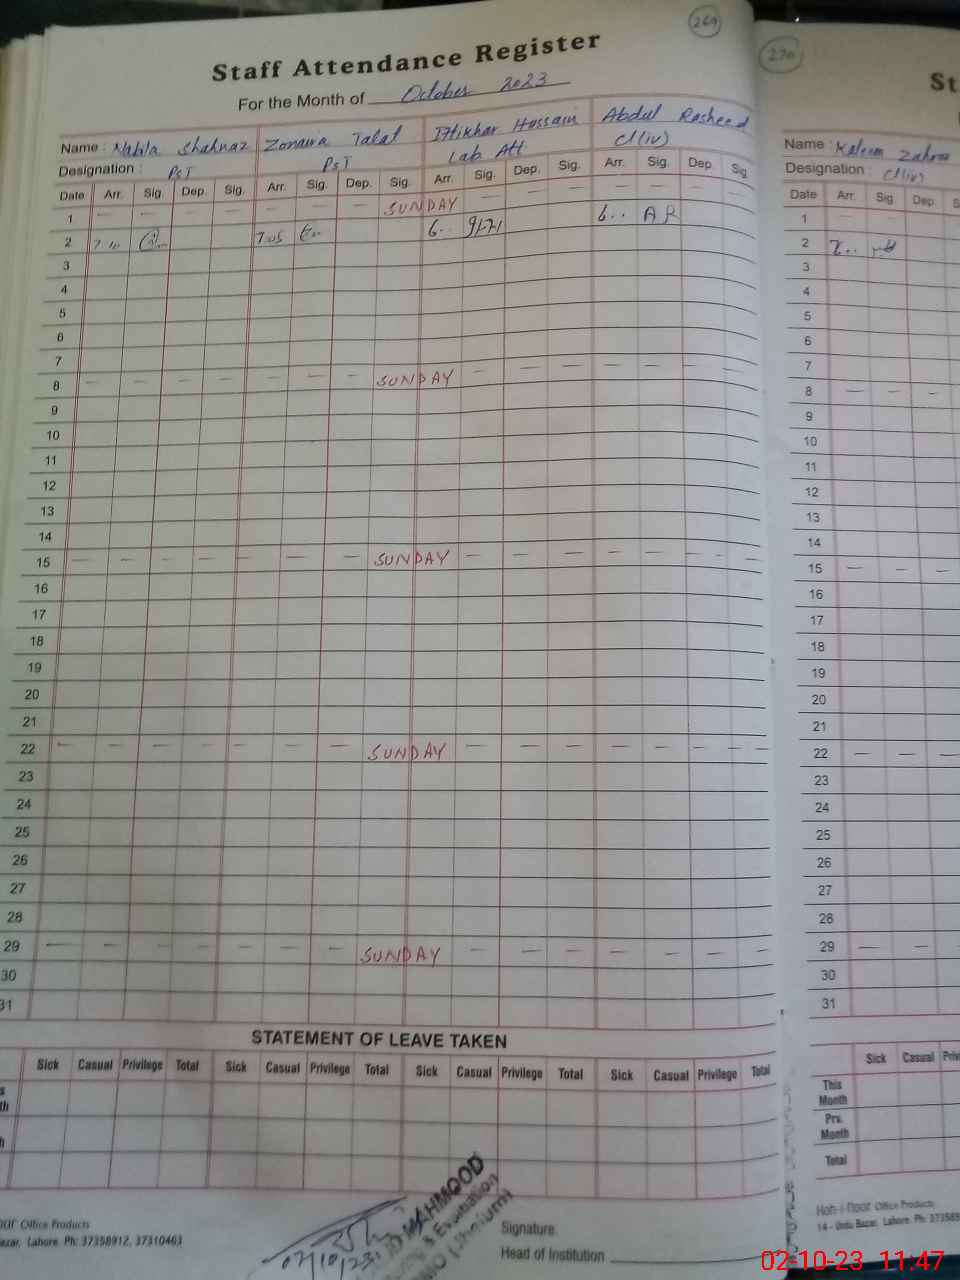 269
Staff Attendance Register
For the Month of October 2023
Name : Nabila Shahnaz Zonaira Talat Iftikhar Hossain Abdul Rasheed
Designation : PST PST Lab Att C/(iv)
Date Arr. Sig. Dep. Sig. Arr. Sig. Dep. Sig. Arr. Sig. Dep. Sig. Arr. Sig. Dep. Sig
1 — — — SUNDAY — — —
2 7 7:05 6.. 6.. AR
3
4
5
6
7
8 — — — — — — — SUNDAY — — — — — — —
9
10
11
12
13
14
15 — — — — — — — SUNDAY — — — — — — — —
16
17
18
19
20
21
22 — — — — — — — SUNDAY — — — — — — — —
23
24
25
26
27
28
29 — — — — — — — SUNDAY — — — — — — —
30
31
STATEMENT OF LEAVE TAKEN
Sick Casual Privilege Total Sick Casual Privilege Total Sick Casual Privilege Total Sick Casual Privilege Total
Office Products
Lahore. Ph: 37358912, 37310463
MAHMOOD
& Evaluation
(Jhelum)
Signature
Head of Institution
270
St
Name : Kaleem Zahra
Designation : C/(iv)
Date Arr. Sig Dep.
1 — —
2 7..
3
4
5
6
7
8 — — —
9
10
11
12
13
14
15 — — —
16
17
18
19
20
21
22 — — —
23
24
25
26
27
28
29 — — —
30
31
Sick Casual Priv
This Month
Prv. Month
Total
Koh-i-Noor Office Products
14 - Urdu Bazar, Lahore. Ph: 37358
02-10-23 11:47